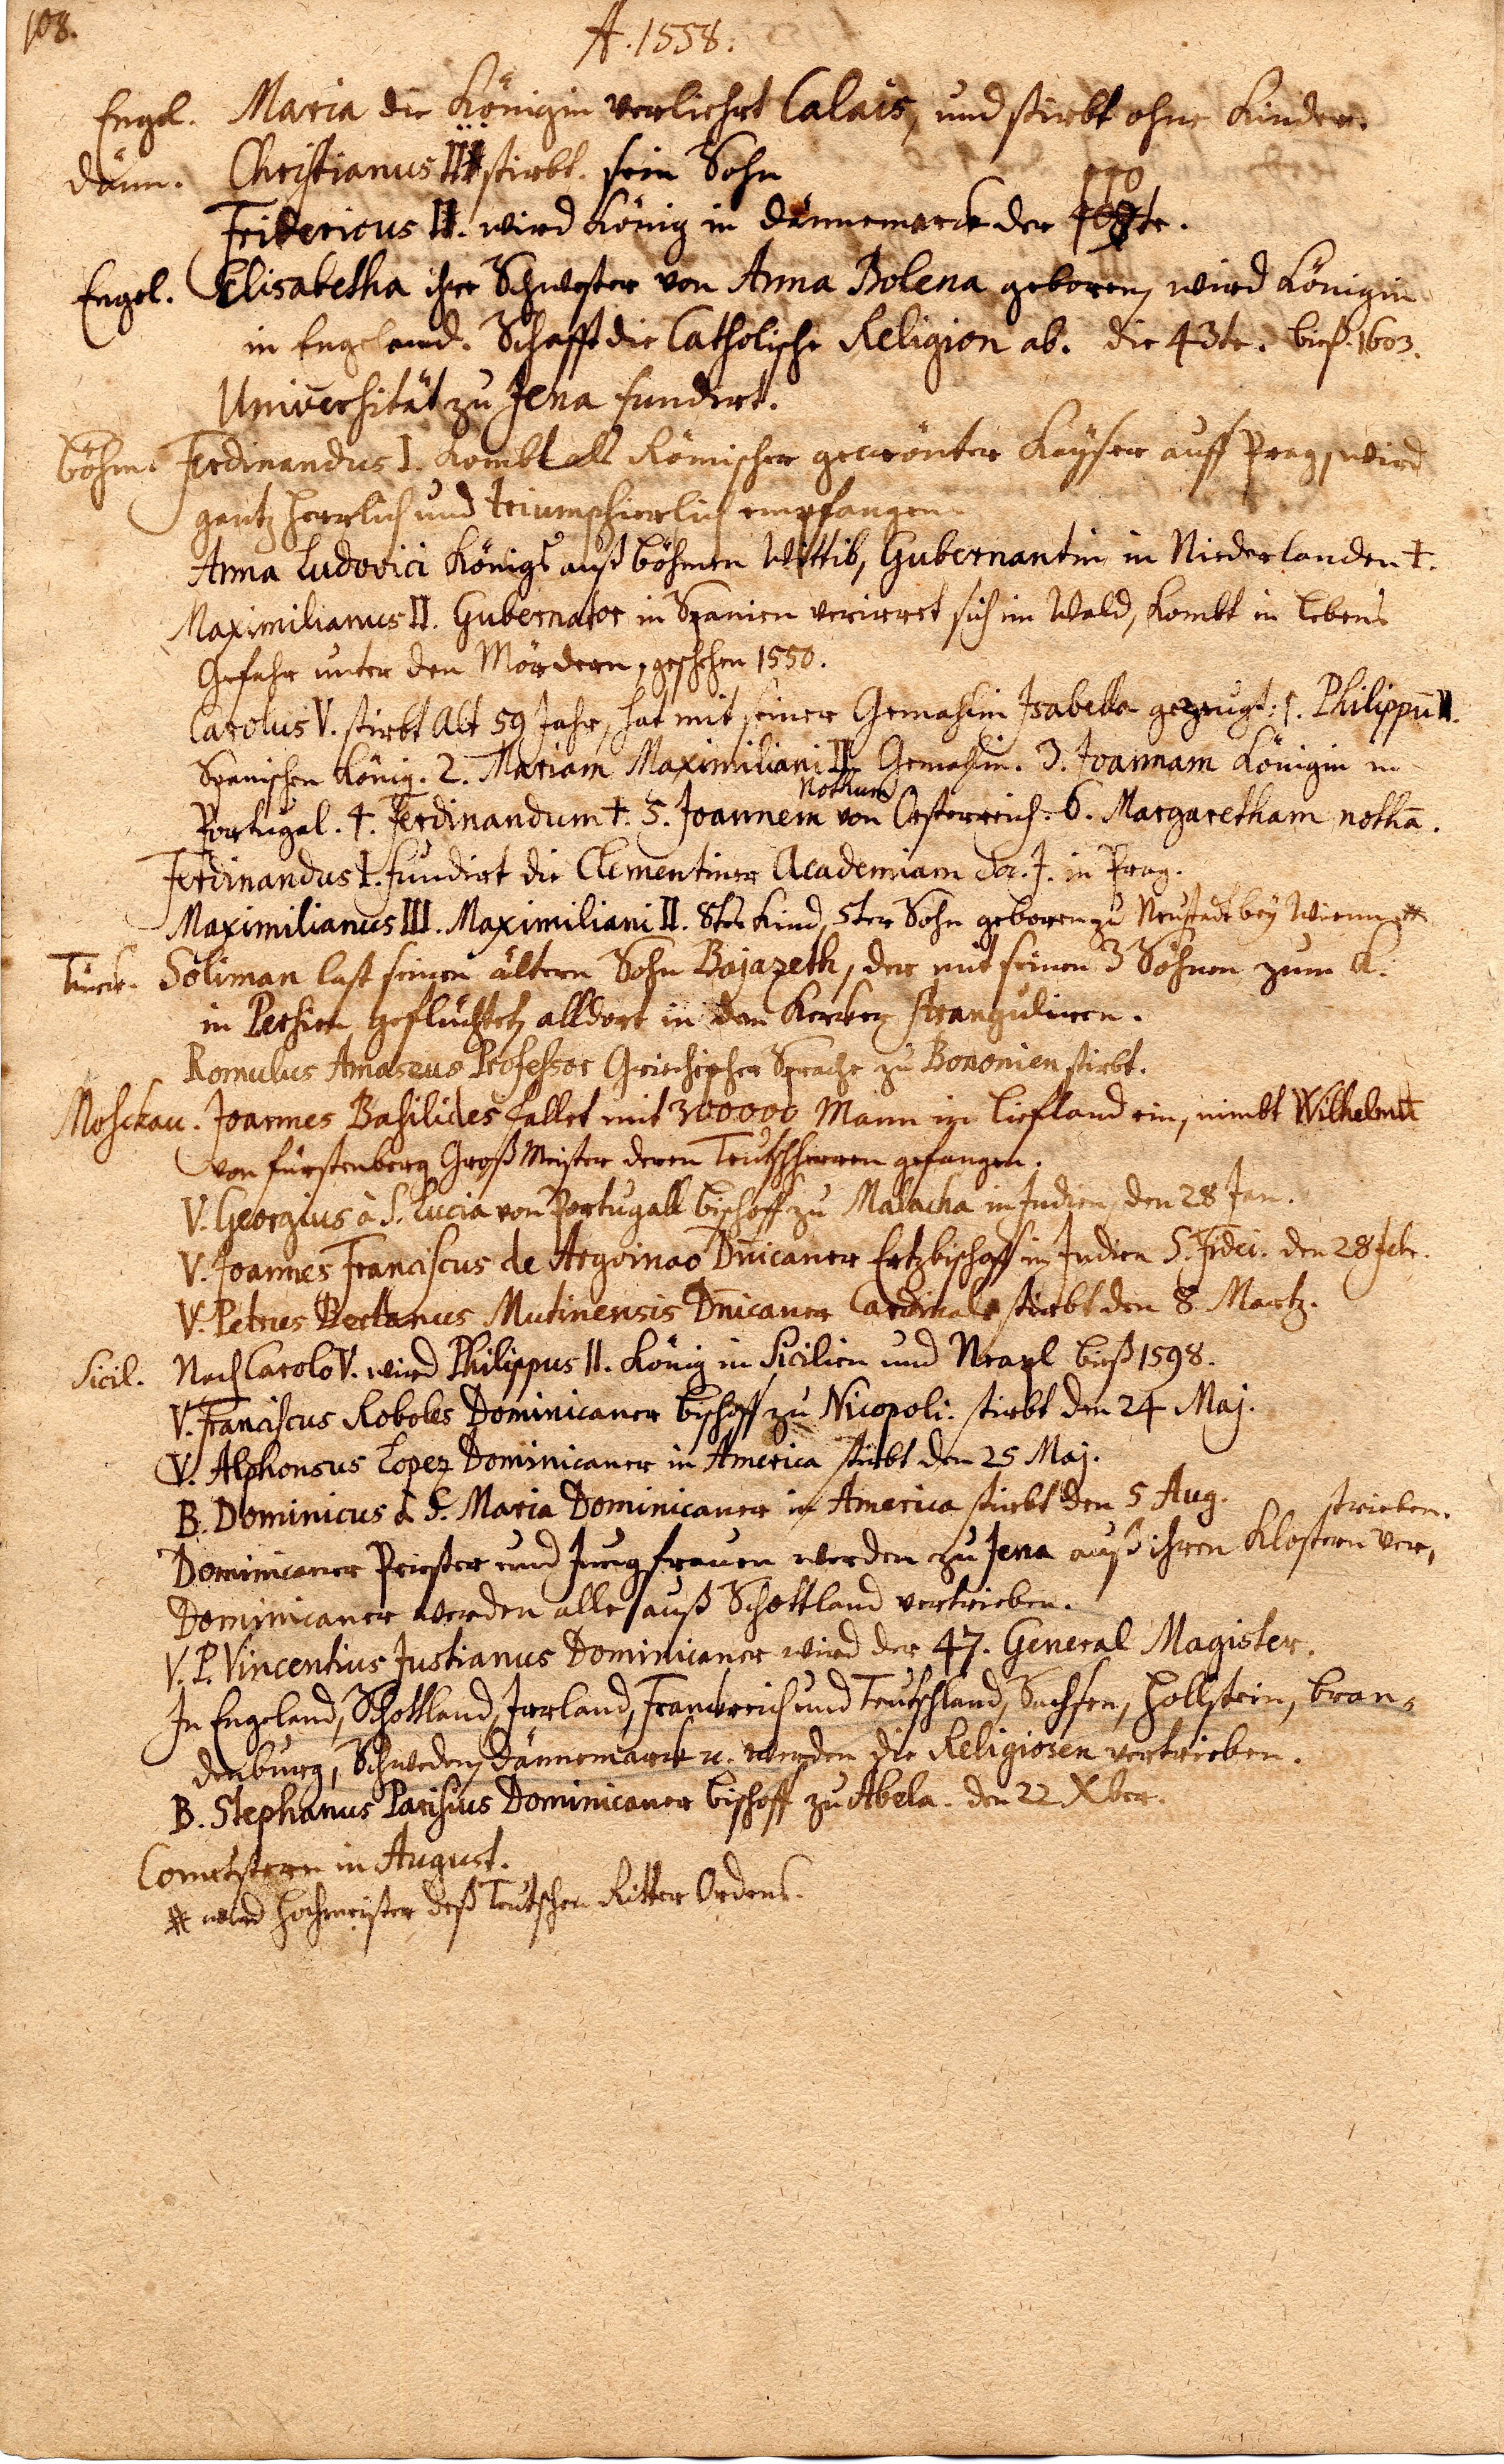 108.
A. 1558.
Engel. Maria die Königin verliehrt Calais, und stirbt ohne Kinder.
Dänn. Christianus III stirbt. sein Sohn
110
Fridericus II. wird König in Dännemarck der te.
Engel. Elisabetha ihre Schwester von Anna Bolena geboren, wird Königin
in Engeland. Schafft die Catholische Religion ab. die 43te. bieß 1603.
Universität zu Jena fundirt.
Böhm. Ferdinandus I. kombt als Römischer gecrönter Kayser auff Prag, wird
gantz herrlich und triumphierlich empfangen.
Anna Ludovici Königs auß Böhmen Wittib, Gubernantin in Niederlanden †.
Maximilianus II. Gubernator in Spanien verirret sich im Wald, kombt in Lebens
Gefahr unter den Mördern, geschehen 1550.
Carolus V. stirbt Alt 59 Jahr, hat mit seiner Gemahlin Isabella gezeugt: 1. Philippū II.
Spanischen König. 2. Mariam Maximiliani II. Gemahlin. 3. Joannam Königin in
Nothum
Portugal. 4. Ferdinandum †. 5. Joannem von Oesterreich. 6. Margaretham nothā.
Ferdinandus I. fundirt die Clementiner Academiam Soc. J. in Prag.
Maximilianus III. Maximiliani II. 8tes Kind, 5ter Sohn geboren zu Neustadt bey Wienn #
Türck. Soliman last seinen ältern Sohn Bajazeth, der mit seinen 3 Söhnen zum K.
in Persien geflüchtet, alldort in dem Kerker stranguliren.
Romulus Amaseus Professor Griechischer Sprache zu Bononien stirbt.
Moschau. Joannes Basilides fallet mit 300000 Mann in Liefland ein, nimbt Wilhelmū
von Fürstenberg Groß Meister deren Teutschherren gefangen.
V. Georgius à S. Lucia von Portugall Bischoff zu Malacha in Indien, den 28 Jan.
V. Joannes Franciscus de Dn̄icaner Ertzbischoff in Indien S. Fidei. den 28 Febr.
V. Petrus Bertanus Mutinensis Dn̄icaner Cardinal stirbt den 8 Martz.
Sicil. Nach Carolo V. wird Philippus II. König in Sicilien und Neapl bieß 1598.
V. Franciscus Roboles Dominicaner Bischoff zu Nicopoli. stirbt den 24 Maj.
V. Alphonsus Lopez Dominicaner in America stirbt den 25 Maj.
B. Dominicus à S. Maria Dominicaner in America stirbt den 5 Aug.
trieben.
Dominicaner Priester und Jungfrauen werden zu Jena auß ihren Klostern ver,
Dominicaner werden alle auß Schottland vertrieben.
V. P. Vincentius Justianus Dominicaner wird der 47. General Magister.
In Engeland, Schottland, Irrland, Franckreich und Teutschland, Sachsen, Hollstein, Bran,
denburg, Schweden, Dännemarck u. werden die Religiosen vertrieben.
B. Stephanus Parisius Dominicaner Bischoff zu Abela. den 22 Xber.
Cometstern in August.
# wird Hochmeister deß Teutschen Ritter Ordens.